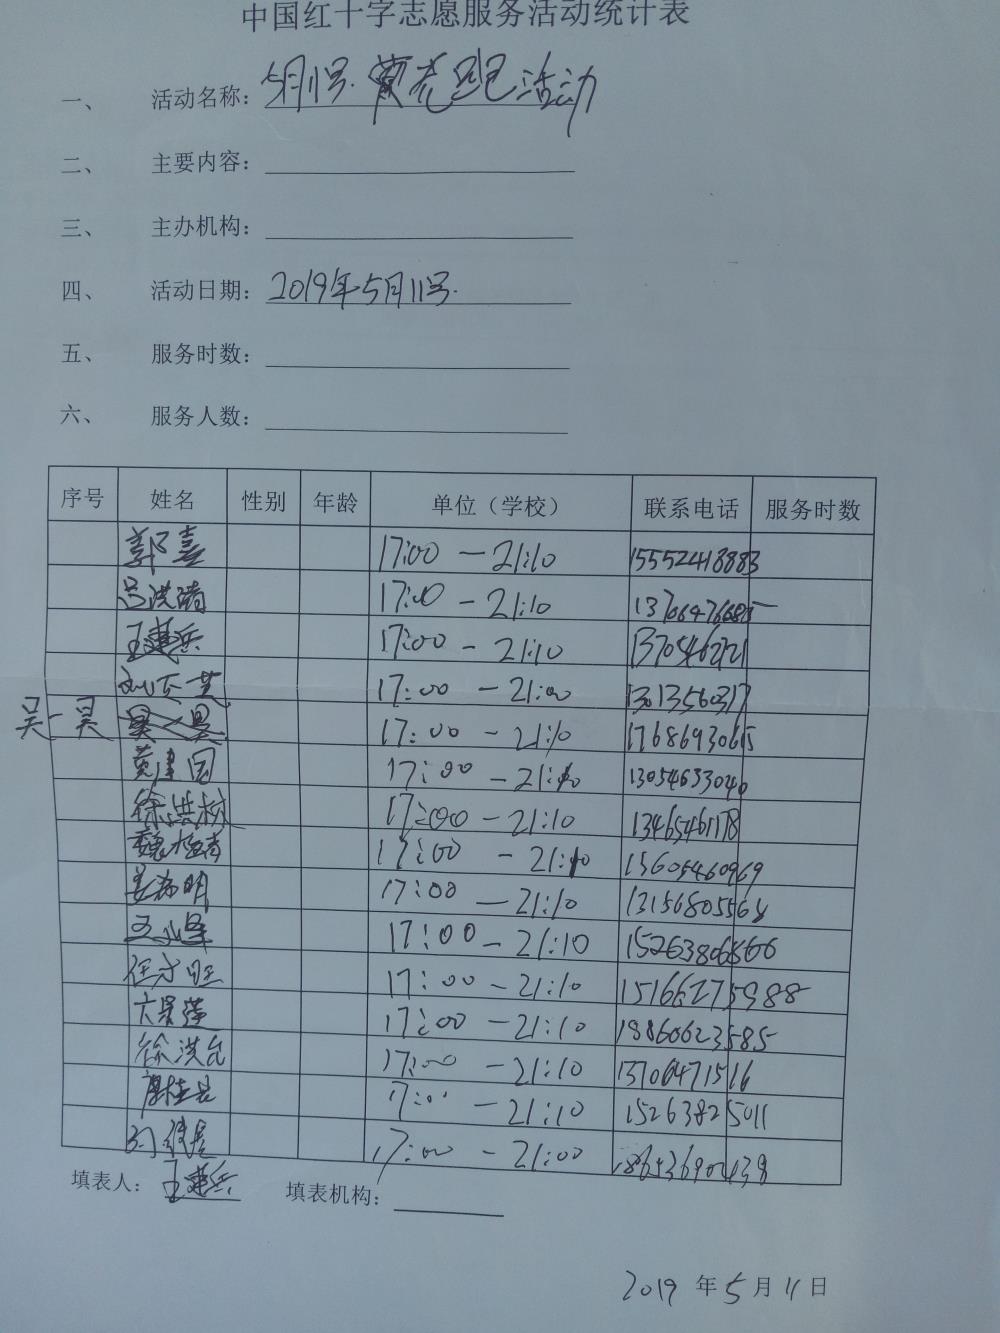 中国红十字志愿服务活动统计表
一、 活动名称：5月11号.黄花跑活动
二、 主要内容：
三、 主办机构：
四、 活动日期：2019年5月11号.
五、 服务时数：
六、 服务人数：
序号 姓名 性别 年龄 单位（学校） 联系电话 服务时数
郭喜 17:00 — 21:10 15552418883
吕洪 17:00 — 21:10
王建兵 17:00 — 21:10
17:00 — 21:00
吴一昊 17:00 — 21:10 17686930615
黄建国 17:00 — 21:10 13054633040
徐洪树 17:00 — 21:10 13465461178
魏 17:00 — 21:10 15605460969
姜 明 17:00 — 21:10 13156805568
17:00 — 21:10 15263806666
任 旺 17:00 — 21:10 15166275988
17:00 — 21:10 18860623585
徐洪 17:00 — 21:10 13706471516
17:00 — 21:10 15263825011
17:00 — 21:00
填表人：王建兵 填表机构：
2019 年 5 月 11 日